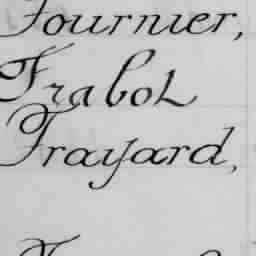 Fournier,
Frabot
Frayard,